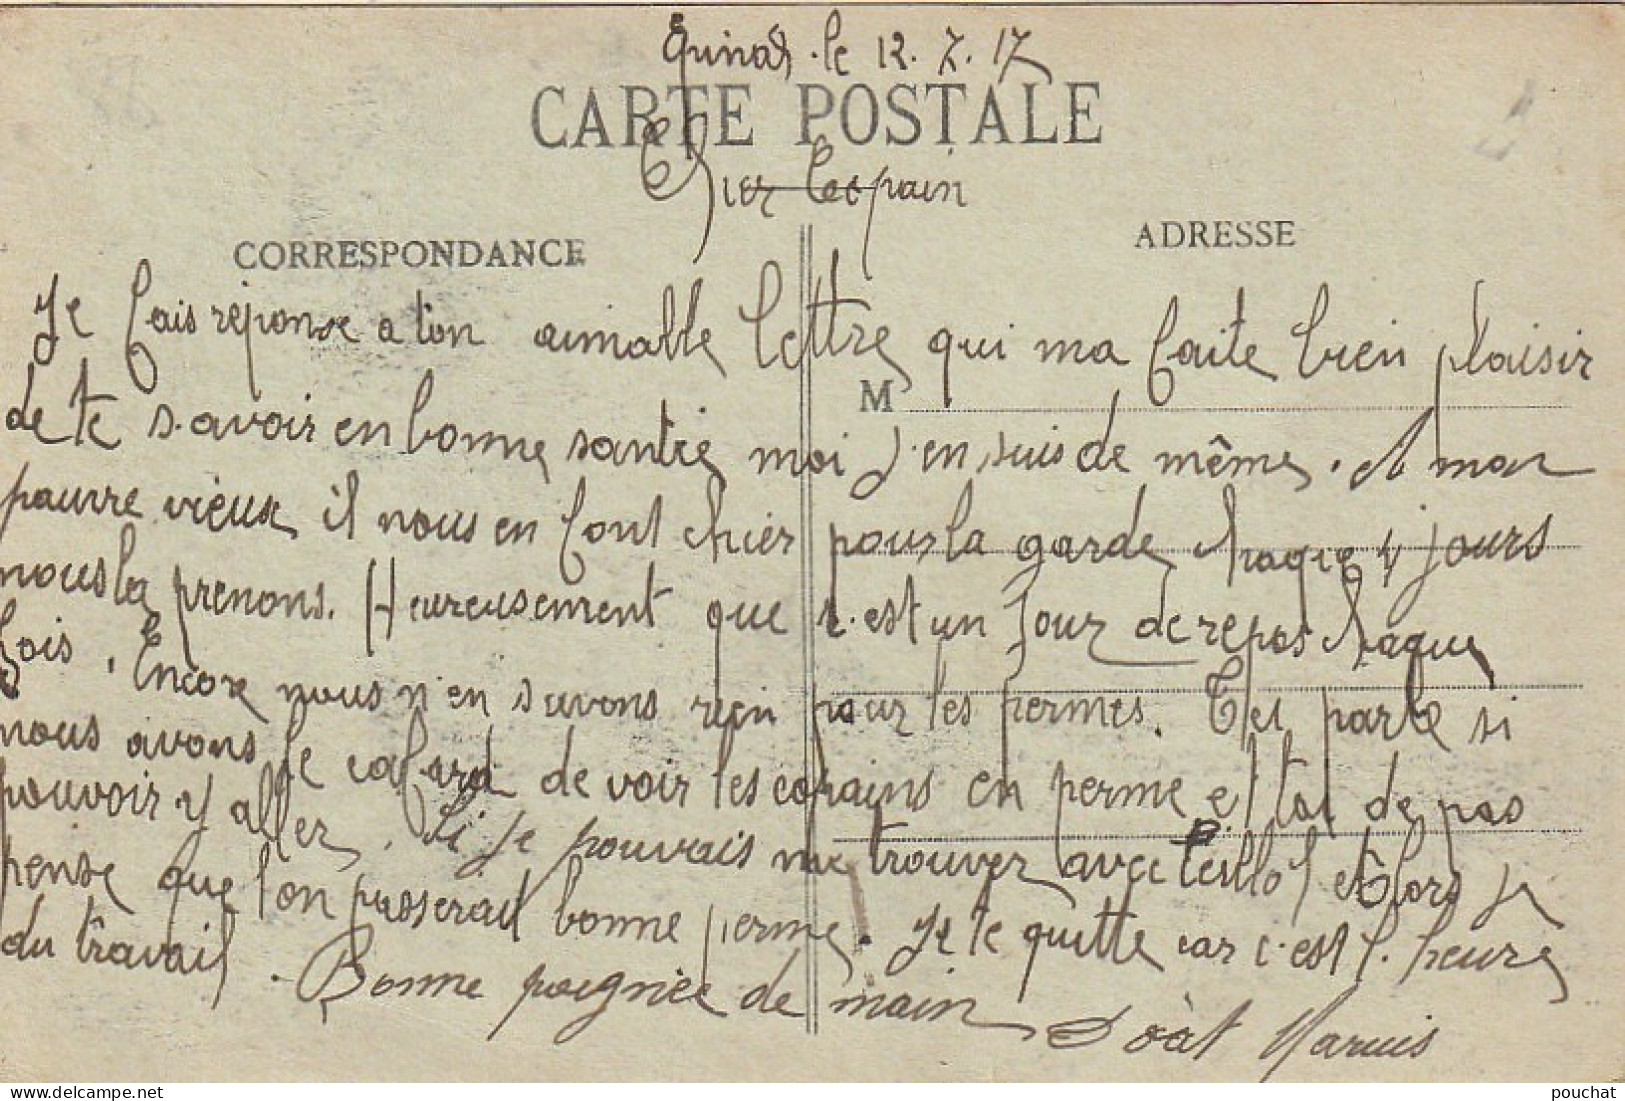 le 12.7.17
CARTE POSTALE
Cher Copain
CORRESPONDANCE
ADRESSE
Je fais réponse a ton aimable lettre qui ma faite bien plaisir
M
de te s.avoir en bonne santée moi j'en suis de même. A mon
pauvre vieux il nous en font chier pour la garde chaque 4 jours
nous la prenons. Heureusement que c.est un jour de repos chaque
fois. Encore nous n'en savons rien pour les permes. Tu parle si
nous avons le cafard de voir les copains en perme et toi de pas
pouvoir y aller. Si je pouvais me trouver avec Alors je
pense que l'on passerait bonne perme. Je te quitte car c'est l.heure
du travail. Bonne poignée de main Doat Marius
pouchat